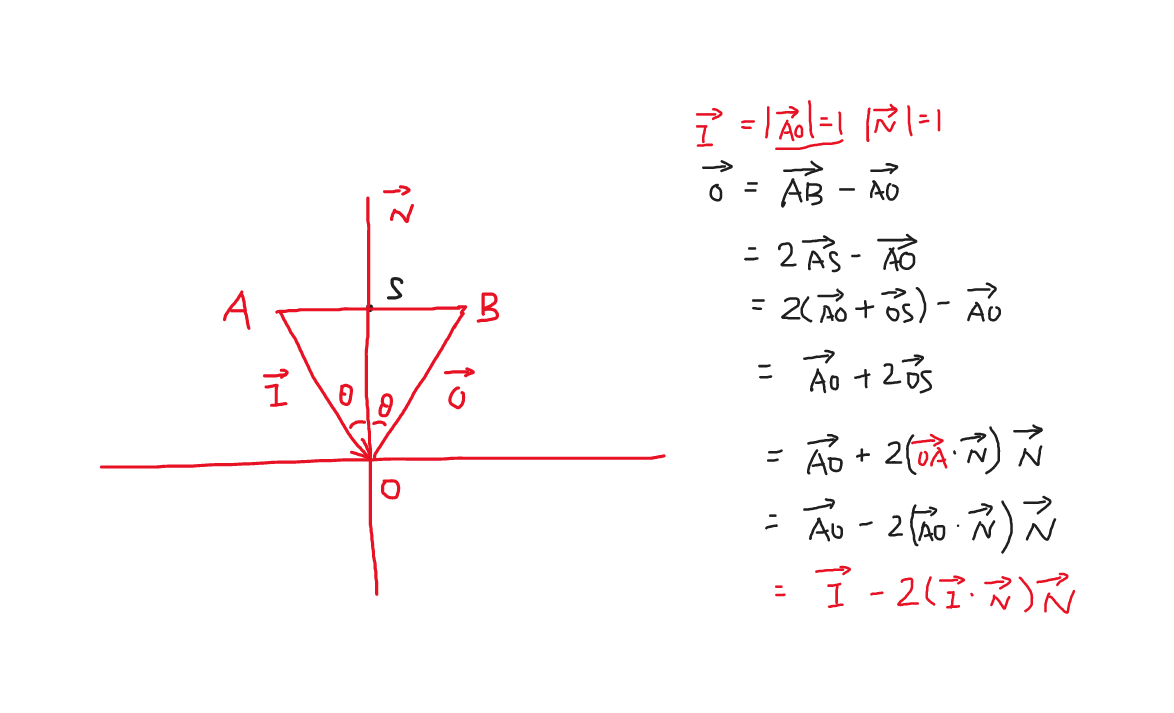 N⃗
S
A
B
I⃗
θ
θ
O⃗
O
I⃗ = |AO⃗| = 1 |N⃗| = 1
O⃗ = AB⃗ - AO⃗
= 2AS⃗ - AO⃗
= 2(AO⃗ + OS⃗) - AO⃗
= AO⃗ + 2OS⃗
= AO⃗ + 2(OA⃗ · N⃗) N⃗
= AO⃗ - 2(AO⃗ · N⃗) N⃗
= I⃗ - 2(I⃗ · N⃗) N⃗